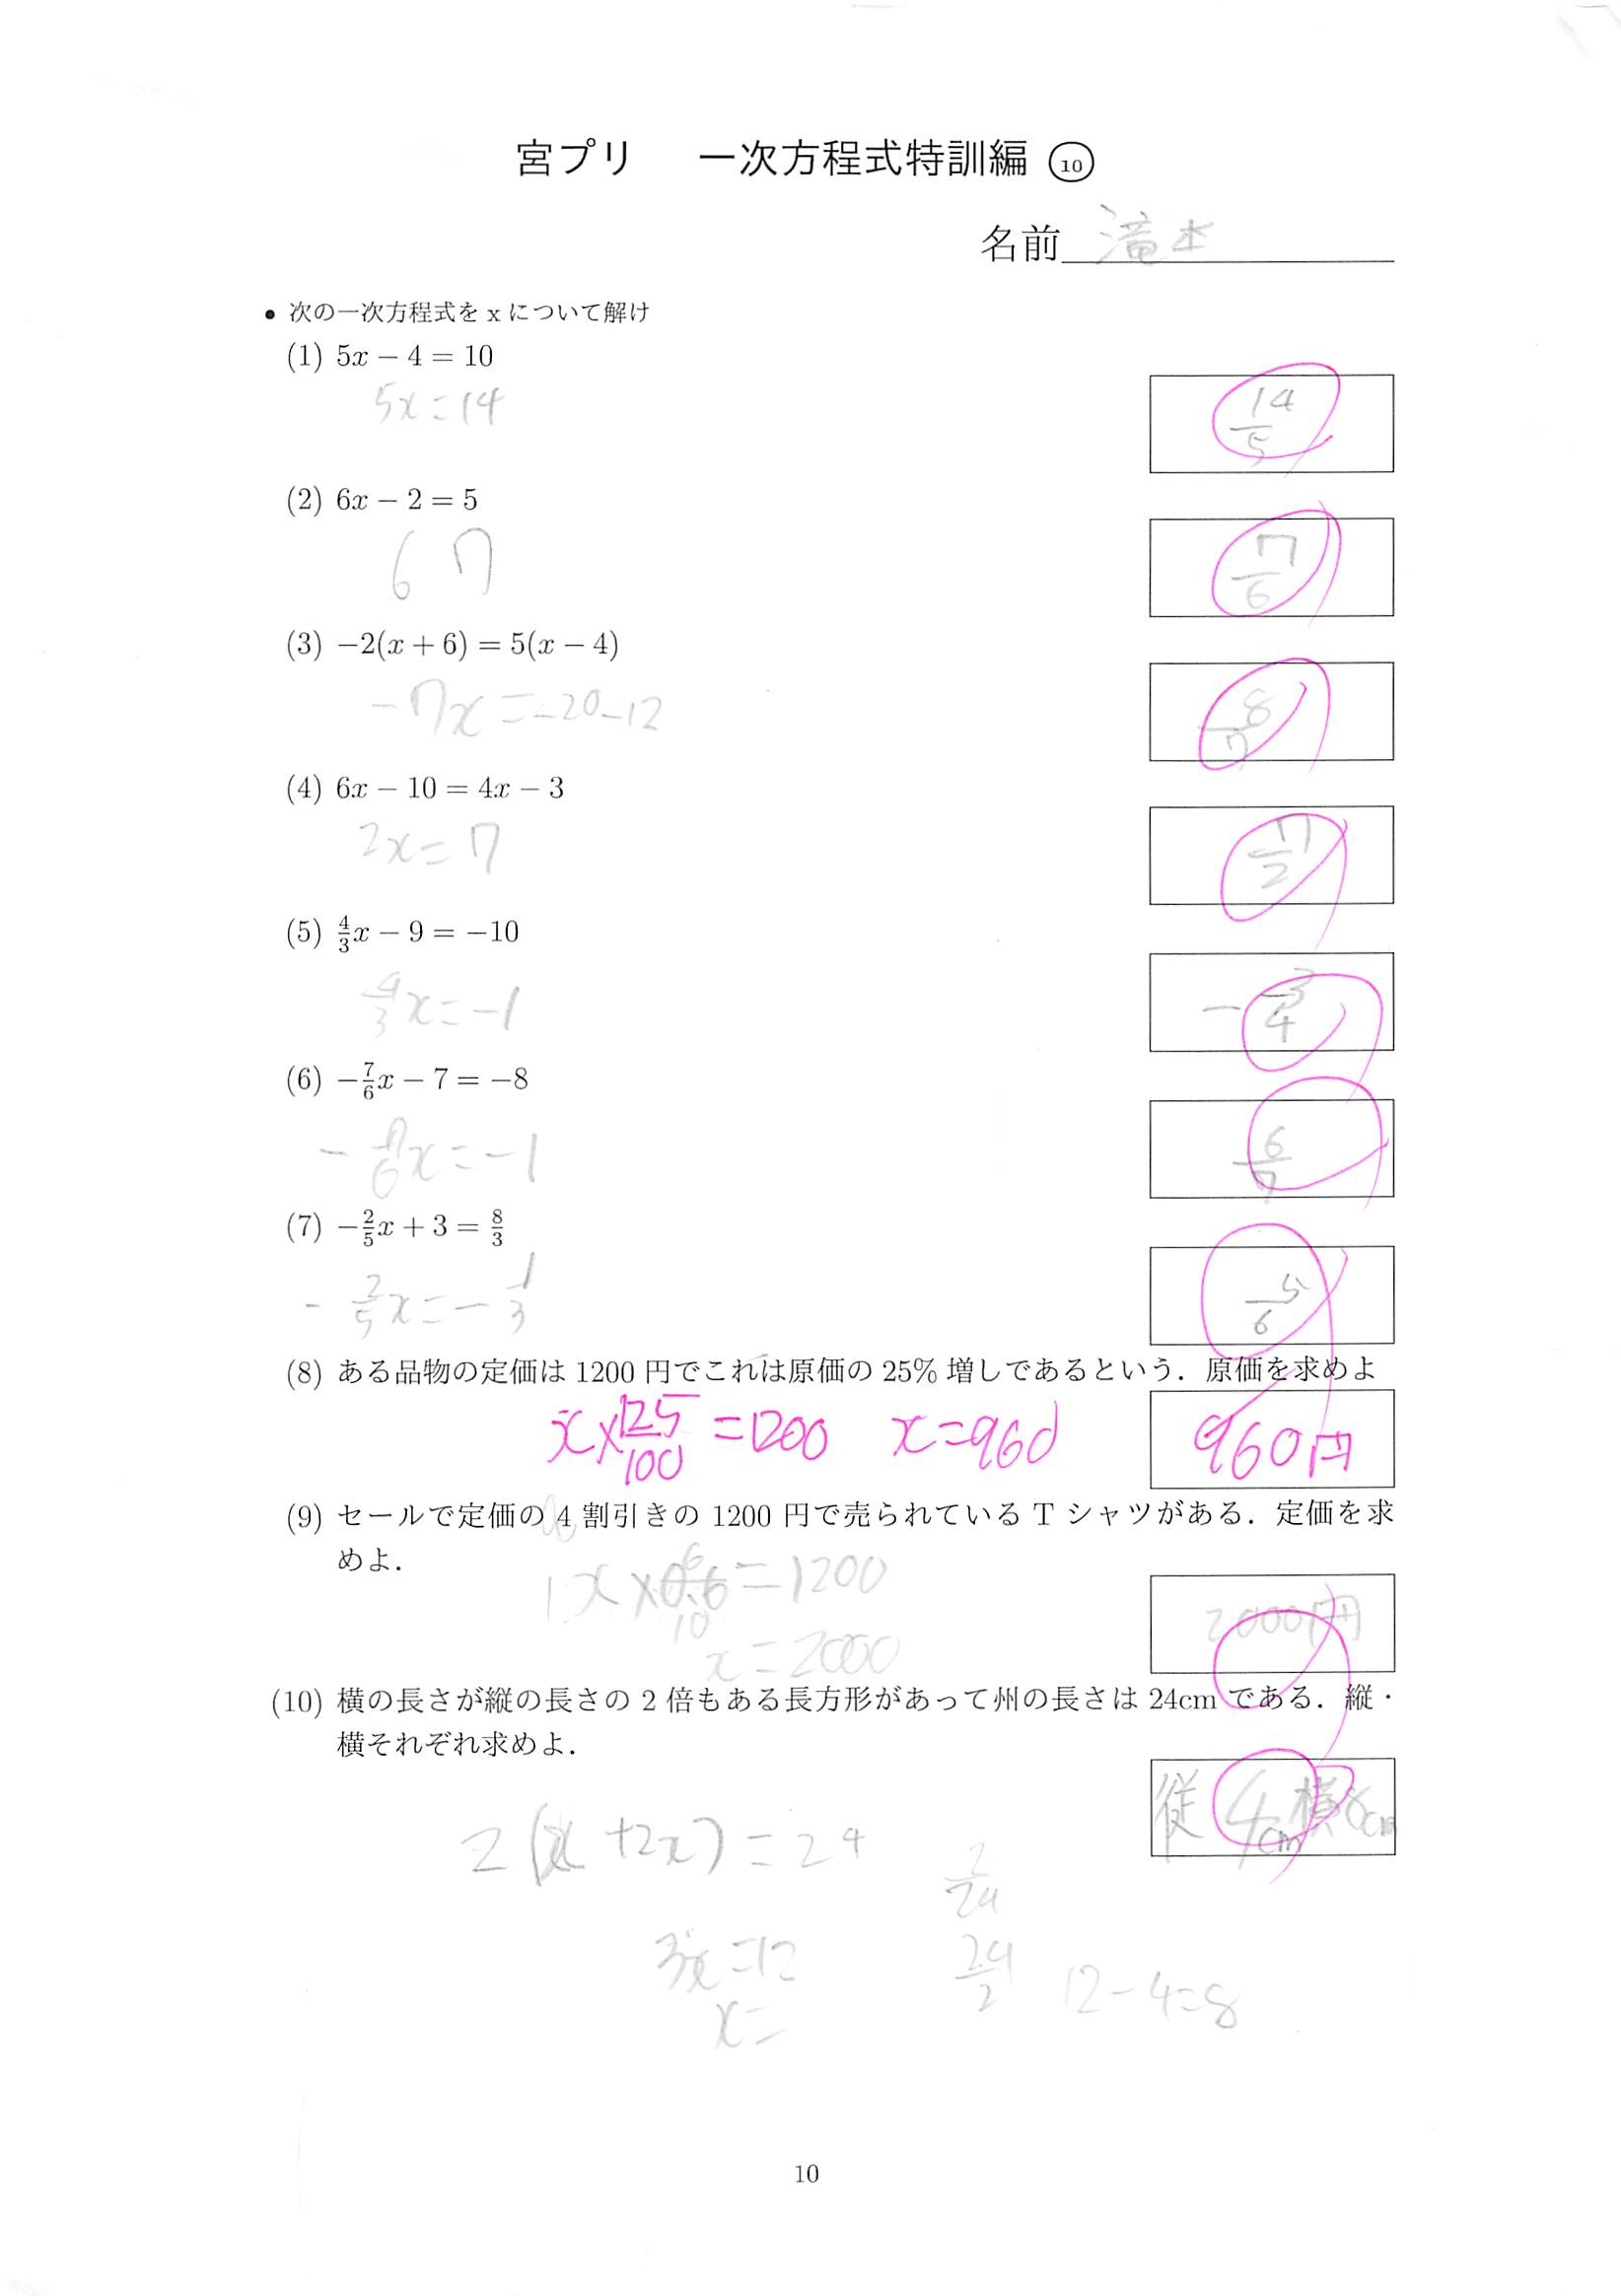 宮プリ　一次方程式特訓編 ⑩
名前 滝本
• 次の一次方程式を x について解け
(1) 5x − 4 = 10
5x = 14
14/5
(2) 6x − 2 = 5
6 7
7/6
(3) −2(x + 6) = 5(x − 4)
−7x = −20−12
8/7
(4) 6x − 10 = 4x − 3
2x = 7
7/2
(5) 4/3x − 9 = −10
4/3x = −1
−3/4
(6) −7/6x − 7 = −8
−7/6x = −1
6/7
(7) −2/5x + 3 = 8/3
−2/5x = −1/3
5/6
(8) ある品物の定価は 1200 円でこれは原価の 25% 増しであるという．原価を求めよ
x×125/100 = 1200　x=960
960円
(9) セールで定価の 4 割引きの 1200 円で売られている T シャツがある．定価を求
めよ．
x = 2000
2000円
(10) 横の長さが縦の長さの 2 倍もある長方形があって州の長さは 24cm である．縦・
横それぞれ求めよ．
従 4cm 横8cm
2(x+2x) = 24
2/24
3x = 12
24/2
12−4=8
x=
10